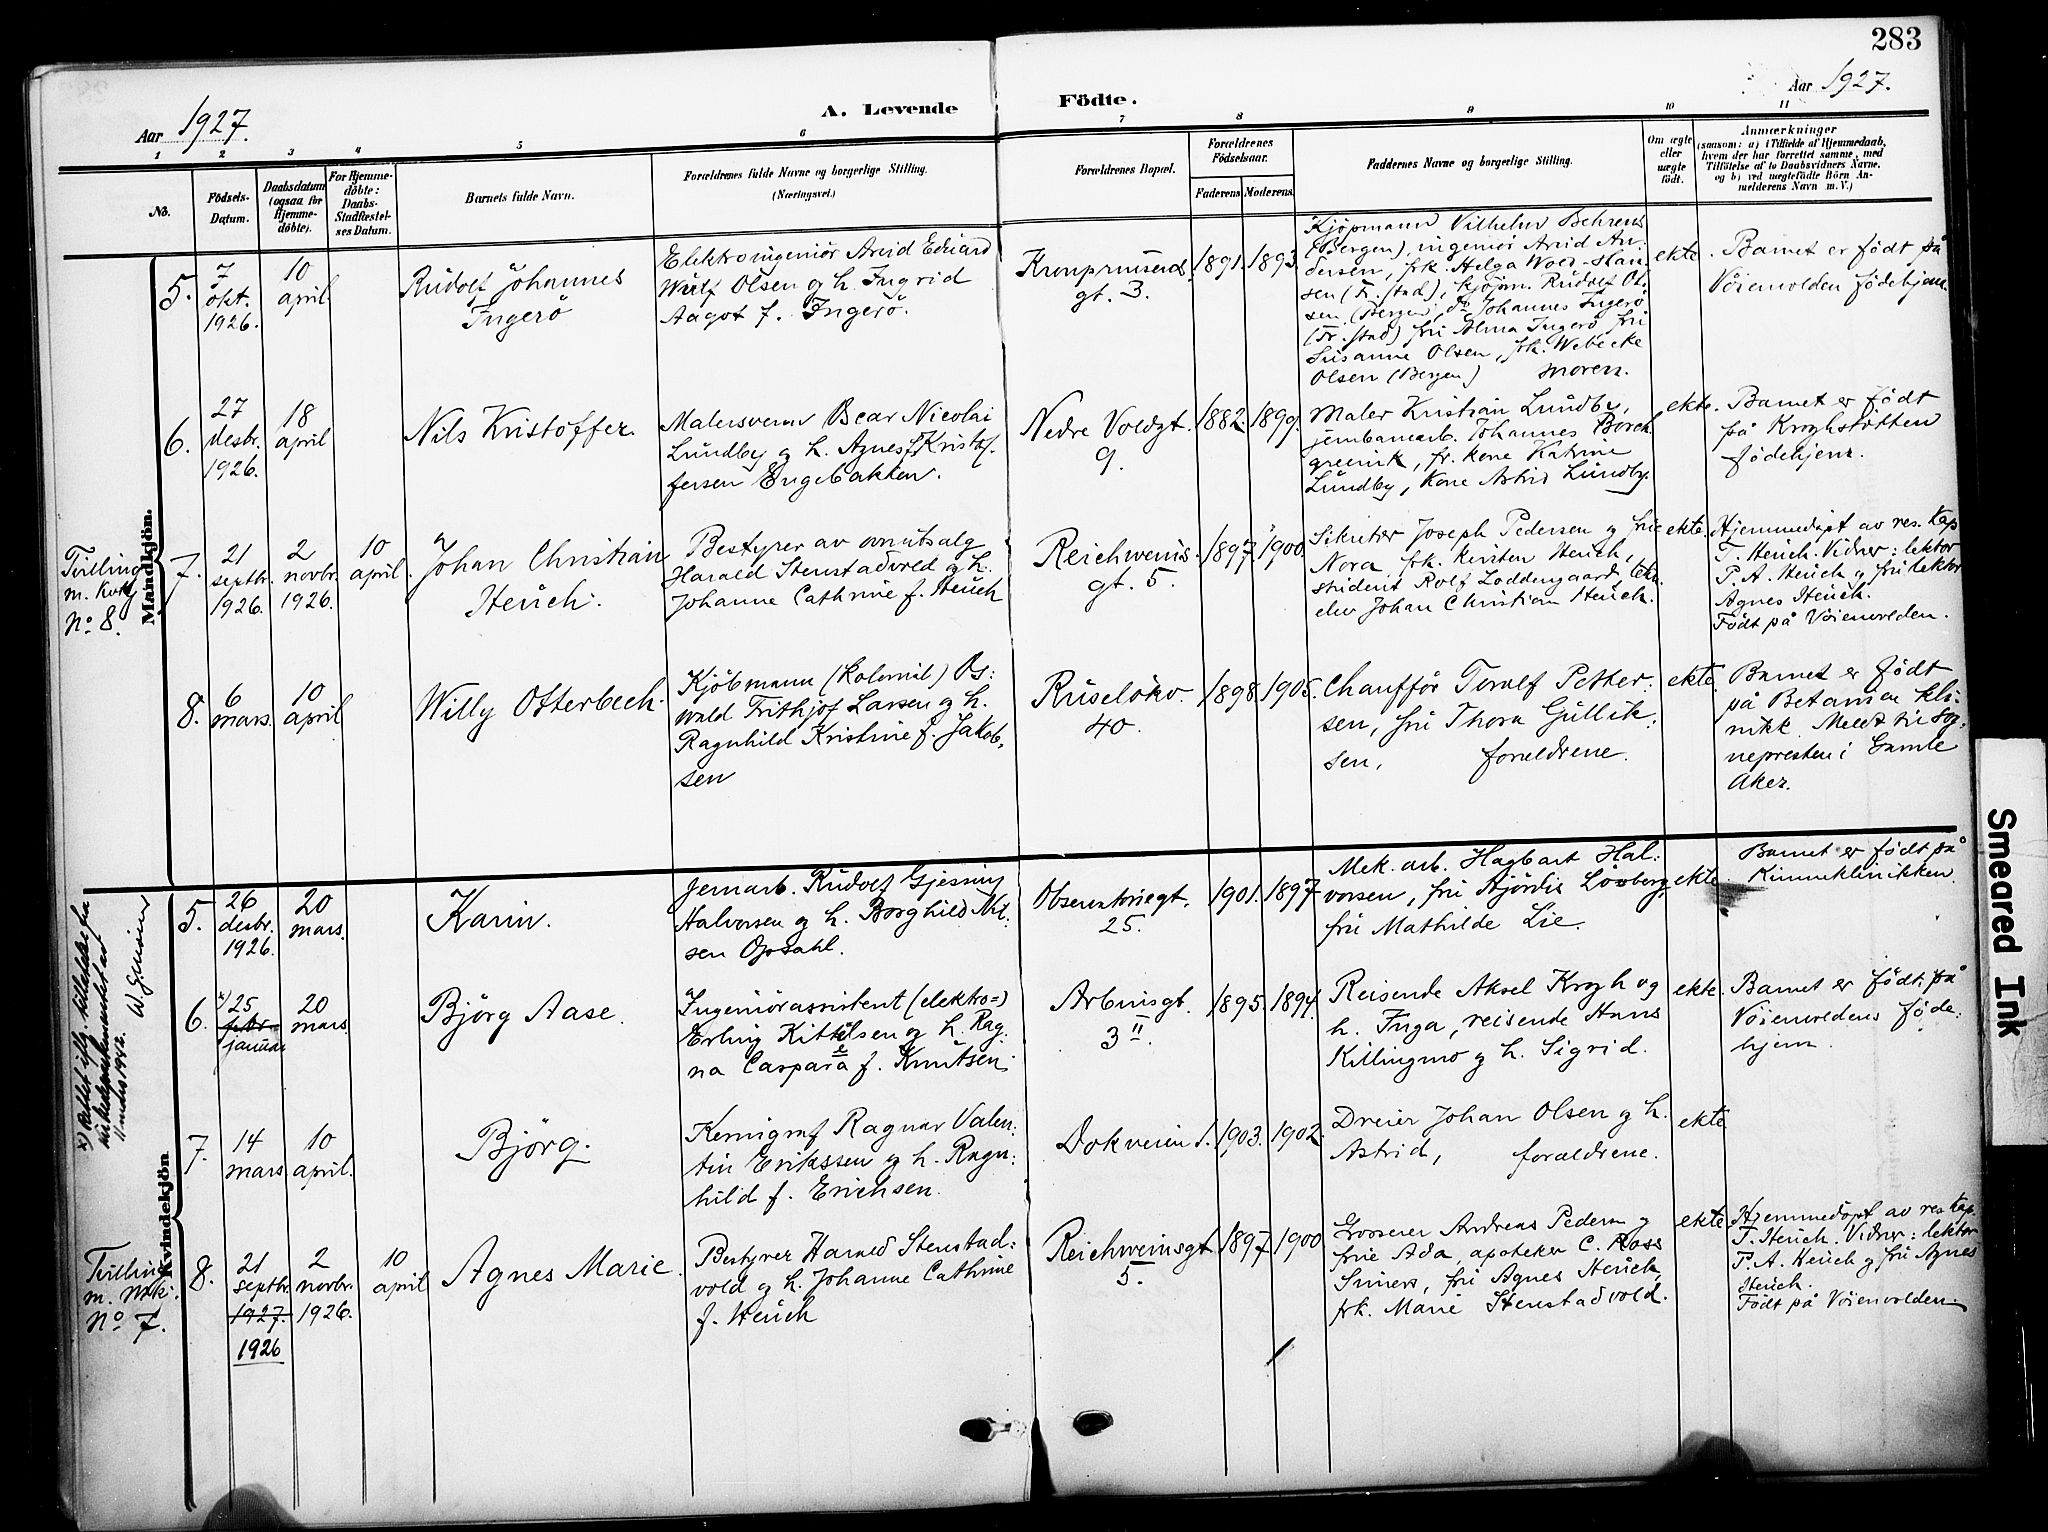 283
Aar 1927.
A. Levende Födte.
Aar 1927.
1 2 3 4 5 6 7 8 9 10 11
No.
Födsels-
Datum.
Daabsdatum
(ogsaa for
Hjemme-
döbte).
For Hjemme-
döbte:
Daabs-
Stadfæstel-
ses Datum.
Barnets fulde Navn.
Forældrenes fulde Navne og borgerlige Stilling.
(Næringsvei.)
Forældrenes Bopæl.
Forældrenes
Födselsaar.
Faderens. Moderens.
Faddernes Navne og borgerlige Stilling.
Om ægte
eller
uægte
födt.
Anmærkninger
(saasom: a) i Tilfælde af Hjemmedaab,
hvem der har forrettet samme, med
Tilföielse af to Daabsvidners Navne.
og b) ved uægtefödte Börn An-
melderens Navn m. V.)
Mandkjön.
5.
7
okt.
1926.
10
april.
Rudolf Johannes
Ingerö
Elektroingeniör Arvid Eduard
Wulf Olsen og h. Ingrid
Aagot f. Ingerö.
Kronprinsens
gt. 3.
1891. 1893.
Kjöpmann Vilhelm Behrens
(Bergen), ingeniör Arvid An-
dersen, frk. Helga Wold-Han
sen (Fr.stad), kjöpm. Rudolf Ol-
sen, (Bergen), do Johannes Ingerö
(Fr.stad) fru Alma Ingerö, fru
Susanne Olsen, frk. Webecke
Olsen (Bergen) moren.
ekte.
Barnet er födt på
Vöienvolden födehjem.
6.
27
desbr.
1926.
18
april
Nils Kristoffer.
Malersvenn Oscar Nicolai
Lundby og h. Agnes f. Kristof-
fersen Engebakken.
Nedre Voldgt.
9.
1882. 1899.
Maler Kristian Lundby,
jernbanearb. Johannes Borch
grevink, fr. kone Katrine
Lundby, Kone Astrid Lundby.
ekte.
Barnet er födt
på Kroghstötten
födehjem.
Tvilling
m. Kvkj
No 8.
7.
21
septbr.
1926.
2
novbr.
1926.
10
april.
Johan Christian
Heuch.
Bestyrer av ovnutsalg
Harald Stenstadvold og h.
Johanne Cathrine f. Heuch
Reichweins
gt. 5.
1897. 1900.
Sekretær Joseph Pedersen og frue
Nora, frk. Kirsten Heuch,
student Rolf Loddengaard, tekn
elev Johan Christian Heuch.
ekte.
Hjemmedöpt av res. Kap
T. Heuch. Vidner: lektor
P. A. Heuch og fru lektor
Agnes Heuch.
Födt på Vöienvolden.
8.
6
mars.
10
april
Willy Otterbech.
Kjöbmann (kolonial) Os-
vald Frithjof Larsen og h.
Ragnhild Kristine f. Jakob-
sen
Ruselökv.
40.
1898. 1905.
Chaufför Toralf Petter-
sen, fru Thora Gullik-
sen, foreldrene.
ekte.
Barnet er födt
på Betanien kli-
nikk. Meldt til sog-
nepresten i Gamle
Aker.
Kvindekjön
5.
26
desbr.
1926.
20
mars.
Karin.
Jernarb. Rudolf Gjessing
Halvorsen og h. Borghild Nil-
sen Opsahl.
Observatoriegt.
25.
1901. 1897
Mek. arb. Hagbart Hal-
vorsen, fru Hjördis Löxberg,
fru Mathilde Lie.
ekte.
Barnet er födt på
Kvinneklinikken.
x) Rettet iflg. tillatelse fra
kirkedepartementet av
11 mars 1942.
6.
x) 25
febr.
januar
20
mars.
Björg Aase.
Ingeniörassistent (elektro=)
Erling Kittelsen og h. Rag-
na Caspara f. Knutsen.
Arbinsgt.
3 II.
1895. 1894.
Reisende Aksel Krogh og
h. Inga, reisende Hans
Killingmo og h. Sigrid.
ekte.
Barnet er födt på
Vöienvoldens föde-
hjem.
7.
14
mars
10
april.
Björg.
Kemigraf Ragnar Valen-
tin Erikssen og h. Ragn-
hild f. Erichsen.
Dokveien 1.
1903. 1902.
Dreier Johan Olsen og h.
Astrid, foreldrene.
ekte
Tvilling
m. Mk.
No 7.
8.
21
septbr.
1927.
1926
2
novbr.
1926.
10
april
Agnes Marie.
Bestyrer Harald Stenstad-
vold og h. Johanne Cathrine
f. Heuch
Reichweinsgt.
5.
1897. 1900
Grosserer Andreas Pedersen og
frue Ada, apoteker C. Ross
Sminers, fru Agnes Heuch,
frk. Marie Stenstadvold.
ekte.
Hjemmedöpt av res kap.
T. Heuch. Vidner: lektor
P. A. Heuch og fru Agnes
Heuch.
Födt på Vöienvolden.
Smeared Ink